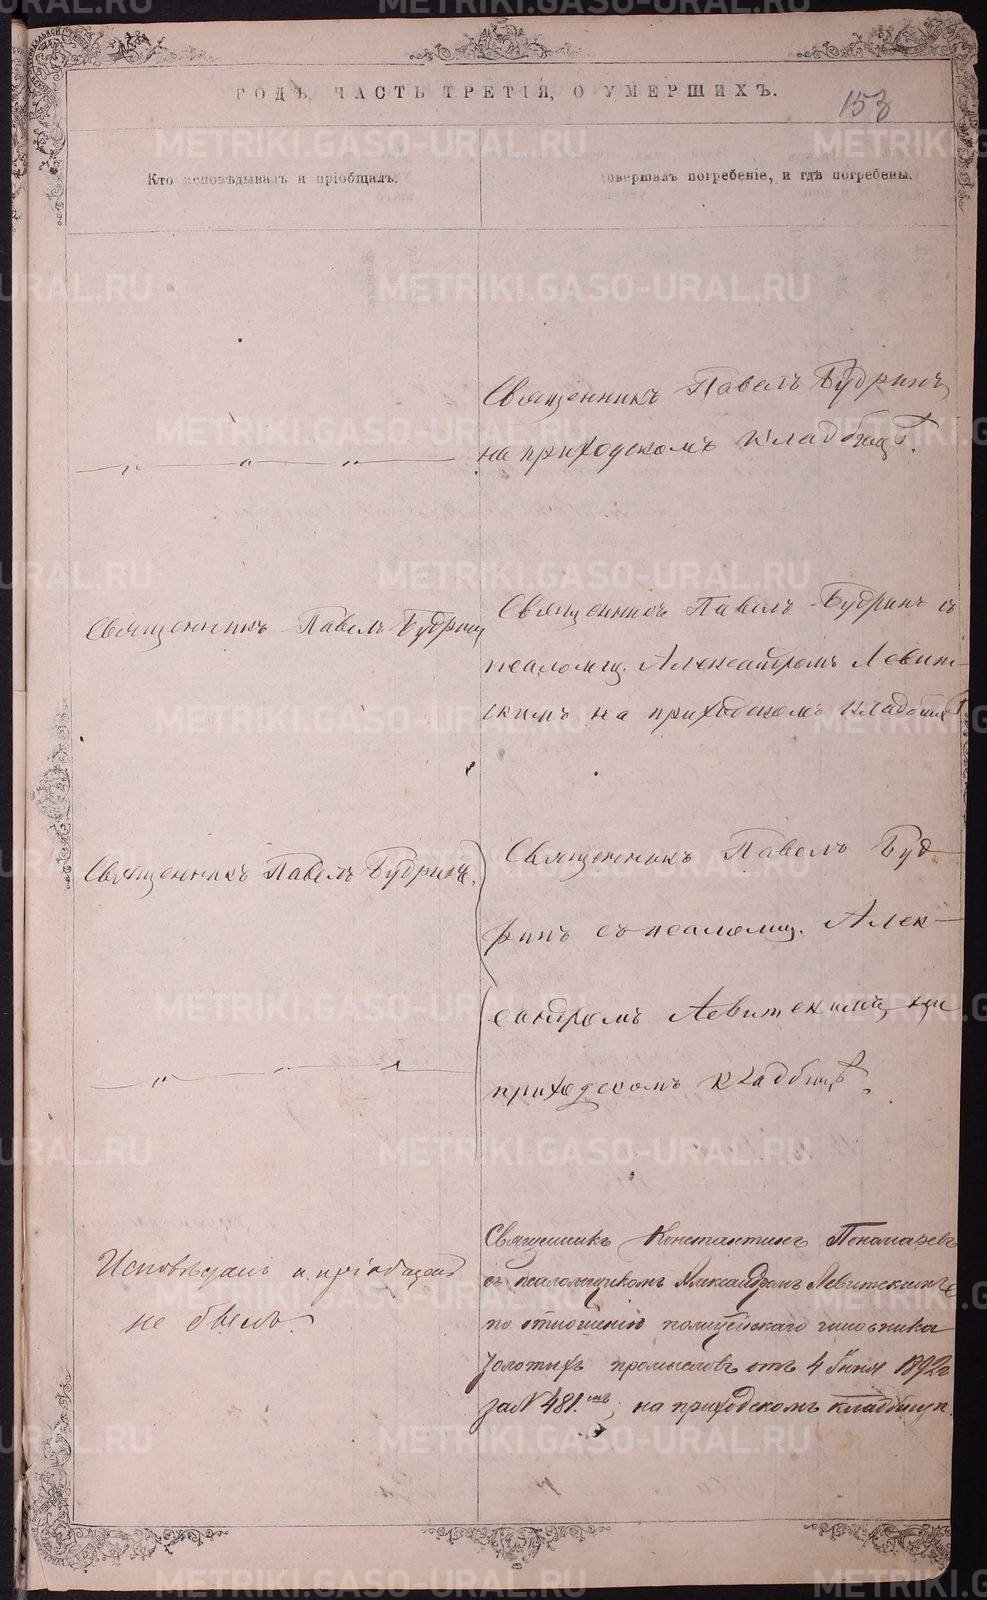 ГОДЪ, ЧАСТЬ ТРЕТІЯ, О УМЕРШИХЪ.
153
Кто исповѣдывалъ и пріобщалъ.
совершалъ погребеніе, и гдѣ погребены.
Священникъ Павелъ Будринъ
на приходскомъ кладбищѣ.
— „ — „ — „ —
Священникъ Павелъ Будринъ
Священникъ Павелъ Будринъ съ
псаломщ. Александромъ Левит-
скимъ на приходскомъ кладбищѣ
Священникъ Павелъ Будринъ.
Священникъ Павелъ Буд-
ринъ съ псаломщ. Алек-
сандромъ Левитскимъ на
приходскомъ кладбищѣ.
— „ — „ — „ —
Исповѣданъ и пріобщенъ
не былъ.
Священникъ Константинъ Пономаревъ
съ псаломщикомъ Александромъ Левитскимъ
по отношенію полицейскаго чиновника
золотыхъ промысловъ отъ 4 Іюня 1892 г.
за № 481.мъ, на приходскомъ кладбищѣ.
METRIKI.GASO-URAL.RU